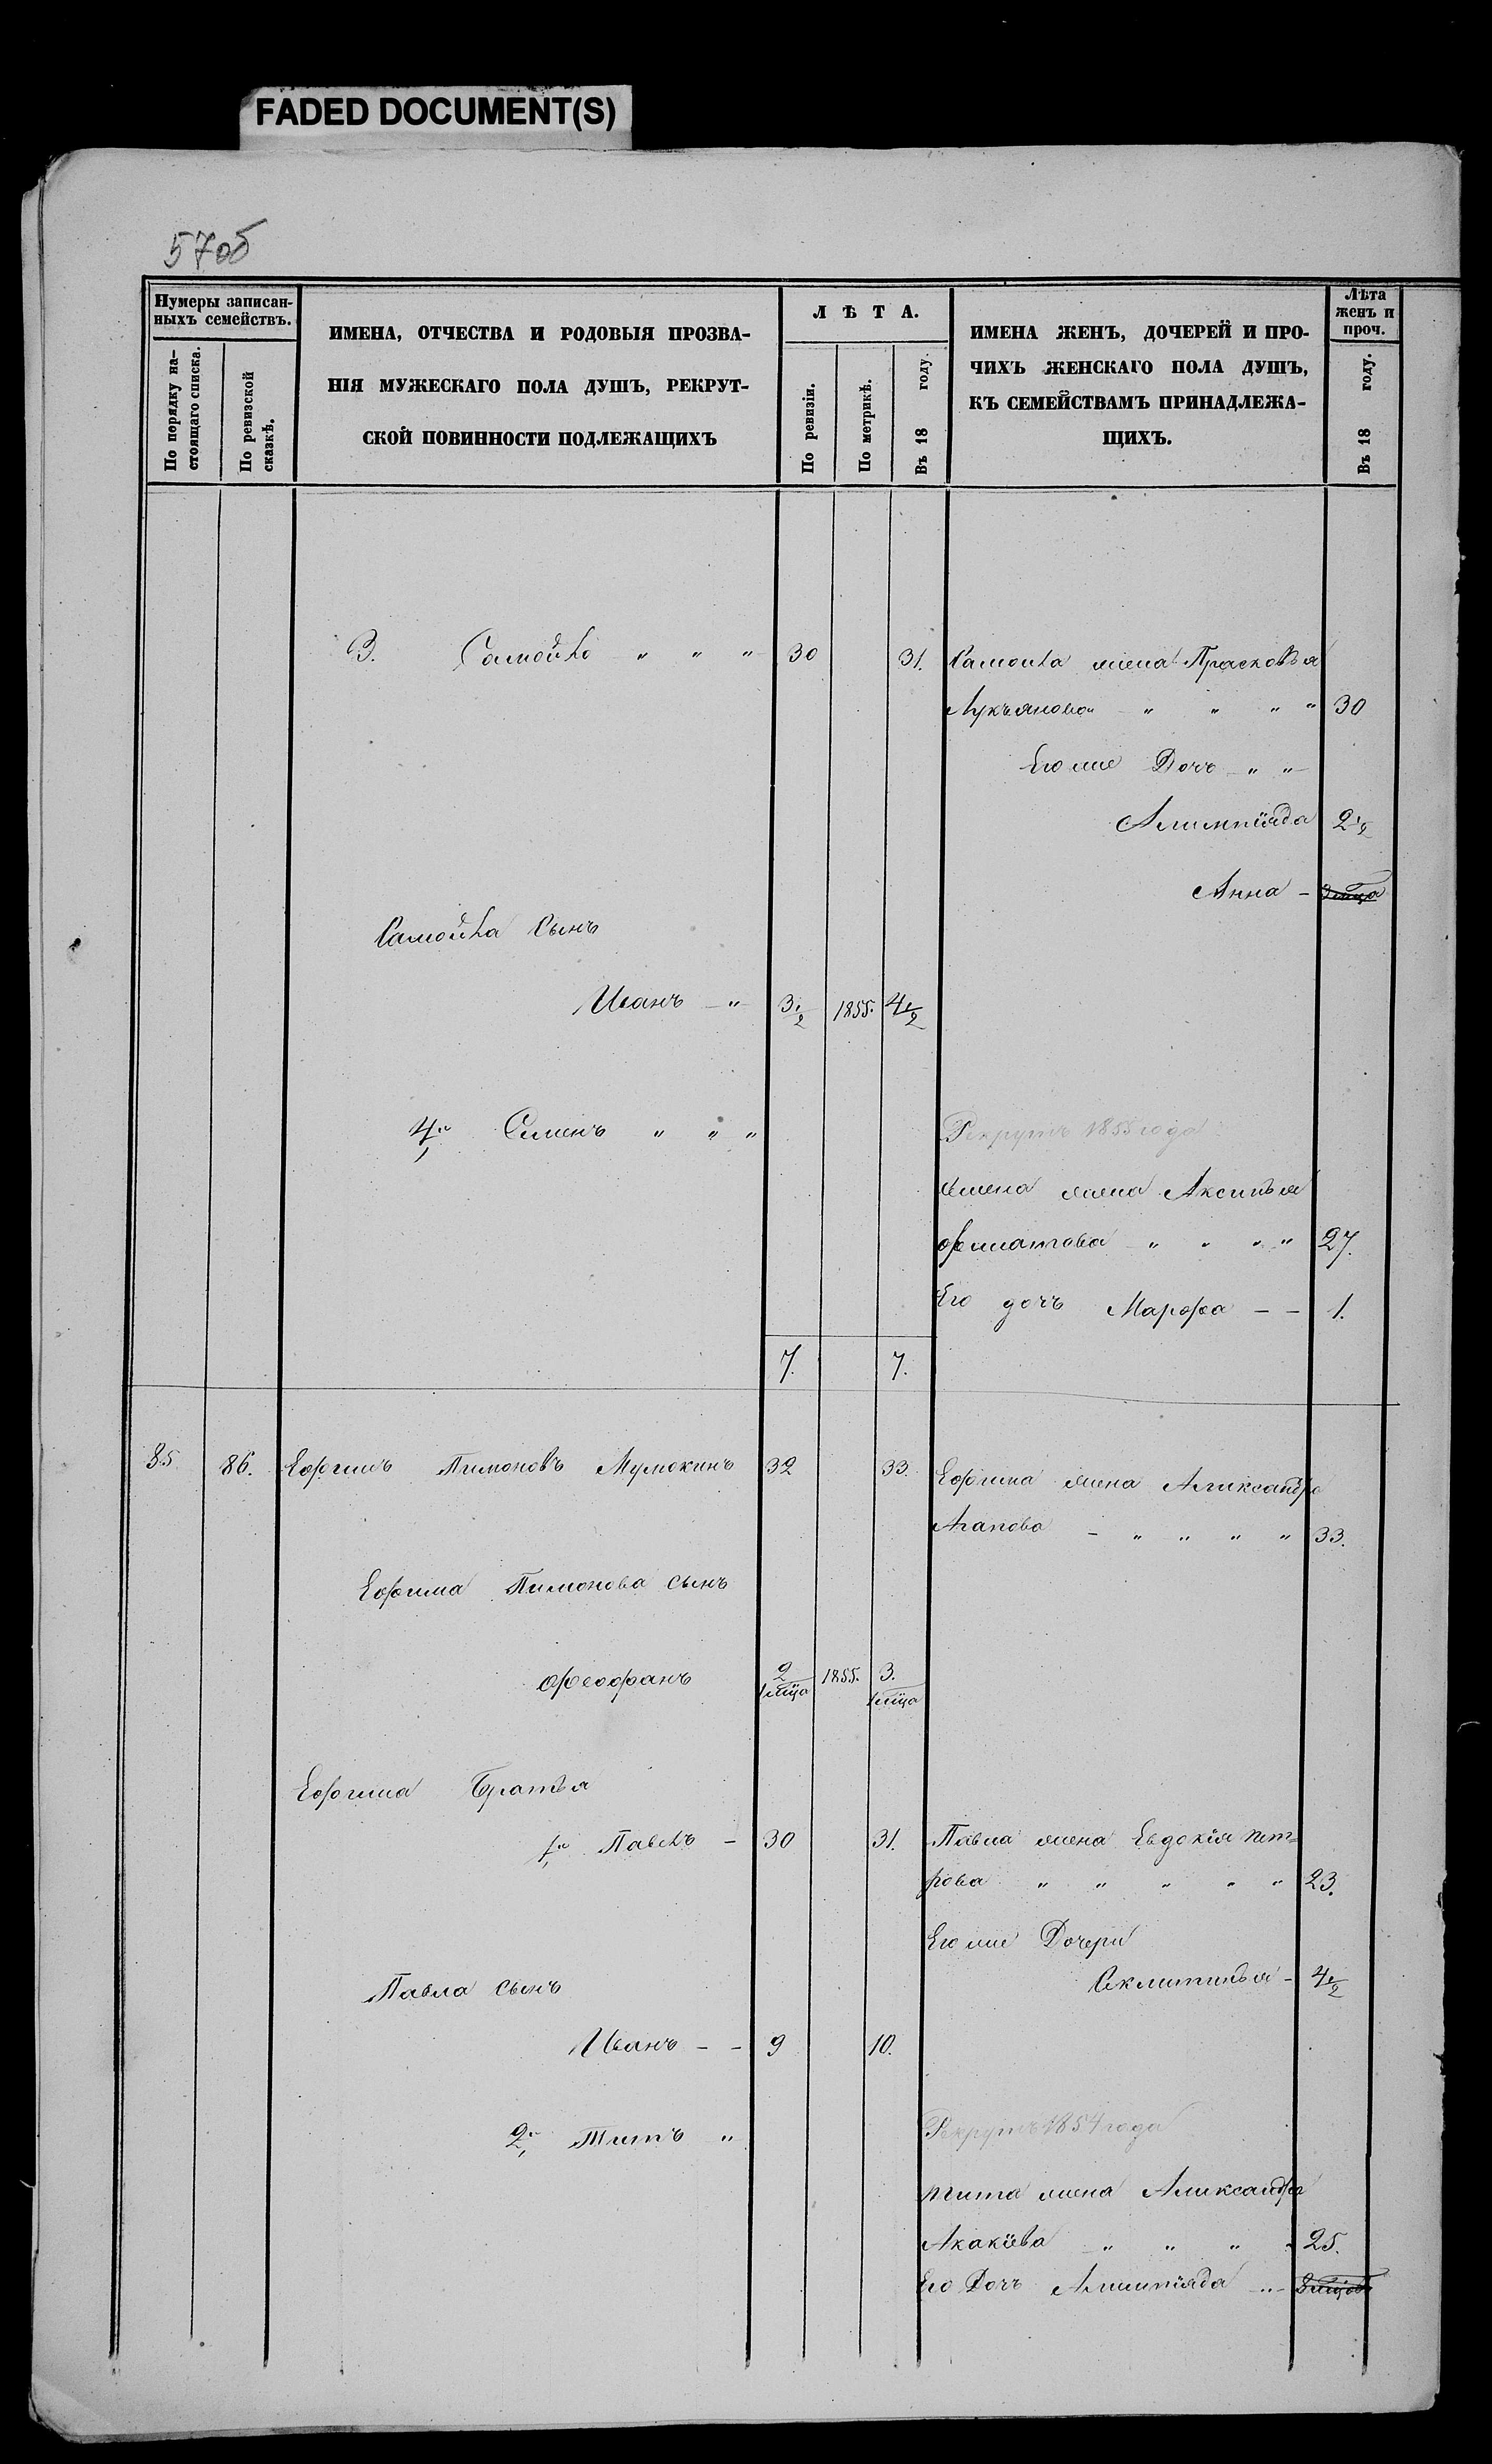 FADED DOCUMENT(S)
57об
Нумеры записан-
ныхъ семействъ.
По порядку на-
стоящаго списка.
По ревизской
сказкѣ.
ИМЕНА, ОТЧЕСТВА И РОДОВЫЯ ПРОЗВА-
НІЯ МУЖЕСКАГО ПОЛА ДУШЪ, РЕКРУТ-
СКОЙ ПОВИННОСТИ ПОДЛЕЖАЩИХЪ
Л Ѣ Т А.
По ревизіи.
По метрикѣ.
Въ 18 году.
ИМЕНА ЖЕНЪ, ДОЧЕРЕЙ И ПРО-
ЧИХЪ ЖЕНСКАГО ПОЛА ДУШЪ,
КЪ СЕМЕЙСТВАМЪ ПРИНАДЛЕЖА-
ЩИХЪ.
Лѣта
женъ и
проч.
Въ 18 году.
3. Самойло " " " 30 31. Самойла жена Прасковья
Лукъянова " " " " 30
Его же Дочь " "
Алимпіяда 2 1/2
Анна -
Самойла Сынъ
Иванъ - " - 3 1/2 1855. 4 1/2
4й Семенъ " " " Рекрутъ 1855 года
семена жена Аксинья
филатова " " " " 27.
Его дочь Марфа - - 1.
7. 7.
85 86. Ефимъ Пимоновъ Мумокинъ 32 33. Ефима жена Александра
Агапова - " " " " 33.
Ефима Пимонова сынъ
феофанъ 2 1855. 3.
1 мца 1 мца
Ефима Братья
1й Павелъ - 30 31. Павла жена Евдокія пет=
рова " " " " " 23.
Его же Дочери
Павла сынъ
Секлитинья - 4 1/2
Иванъ - - 9 10.
2й Титъ " Рекрутъ 1854 года
тита жена Александра
Акакіева " " " " 25.
Его Дочь Алимпіяда " -